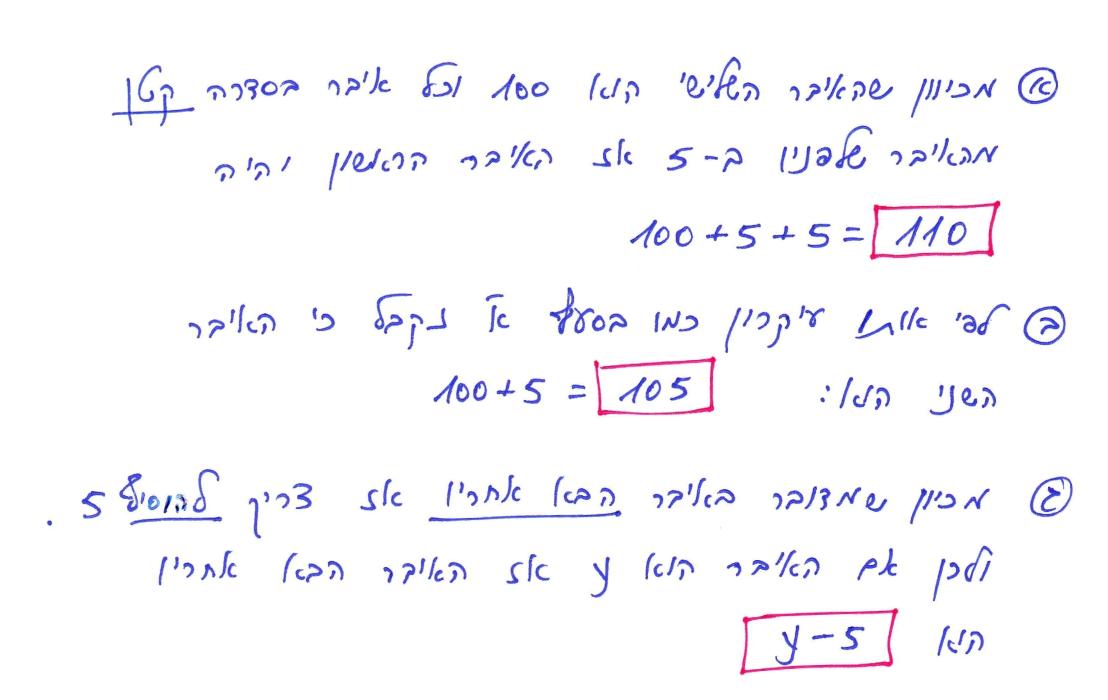 א מכיוון שהאיבר השלישי הוא 100 וכל איבר בסדרה קטן
מהאיבר שלפניו ב-5 אז האיבר הראשון יהיה
100+5+5= 110
ב לפי אותו עיקרון כמו בסעיף א' נקבל כי האיבר
השני הוא: 100+5 = 105
ג מכיוון שמדובר באיבר הבא אחריו אז צריך להוסיף 5 .
ולכן אם האיבר הוא y אז האיבר הבא אחריו
הוא y-5